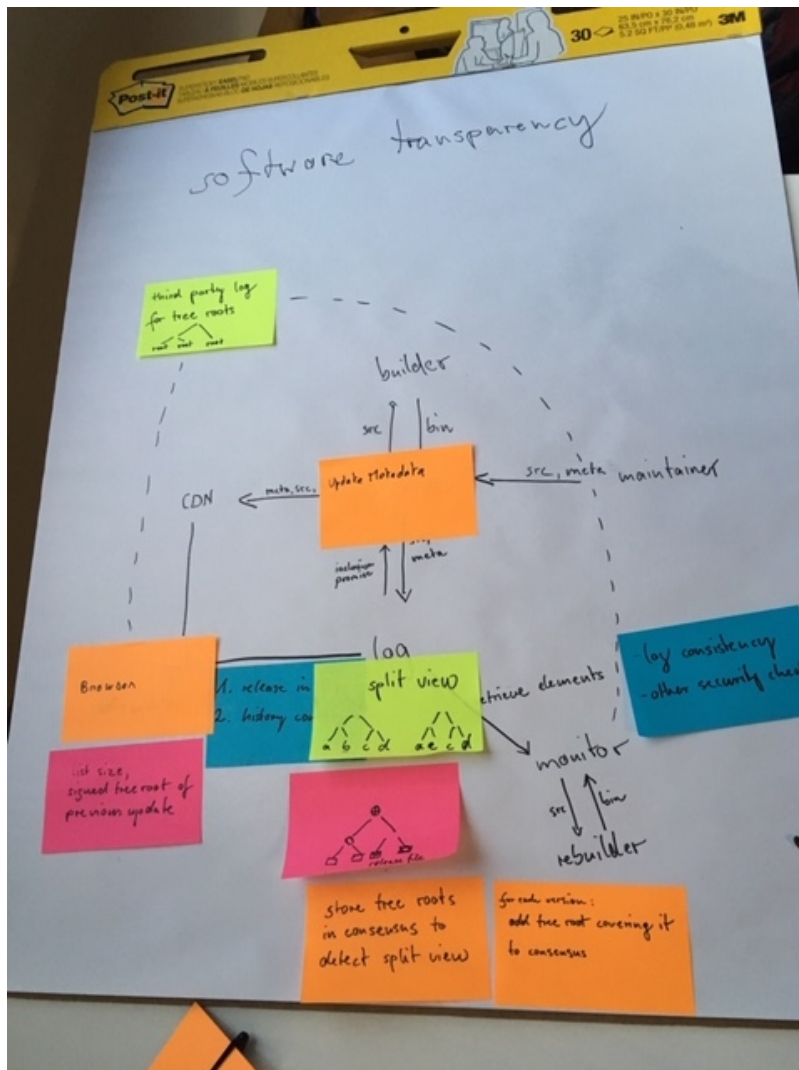 Post-it
30
25 IN/PO x 30 IN/PO
63,5 cm x 76,2 cm
5.2 SQ FT/PP (0,48 m²)
3M
software transparency
third party log
for tree roots
root root root
builder
src
bin
Update Metadata
src, meta
maintainer
meta, src,
CDN
inclusion
promise
meta
log
Browser
1. release in
2. history con
split view
a b c d
a e c d
etrieve elements
-log consistency
-other security chec
monitor
src
bin
rebuilder
list size,
signed tree root of
previous update
release file
store tree roots
in consensus to
detect split view
for each version:
add tree root covering it
to consensus